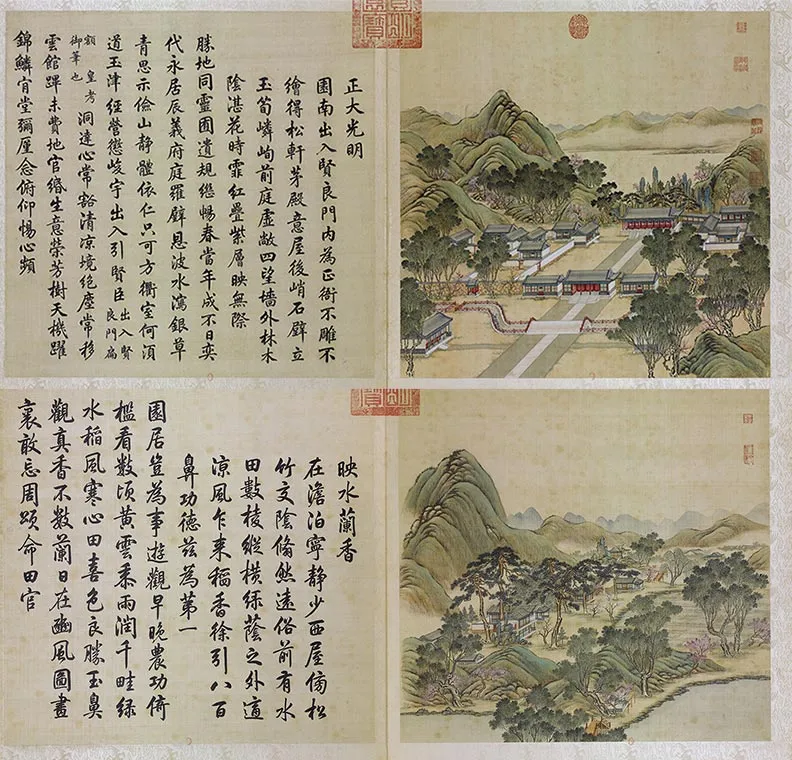 正大光明
園南出入賢良門內為正衙不雕不
繪得松軒茅殿意屋後峭石壁立
玉筍嶙峋前庭虛敞四望墻外林木
陰湛花時霏紅疊紫層映無際
勝地同靈囿遺規繼暢春當年成不日奕
代永居辰義府庭羅璧恩波水瀉銀草
青思示儉山靜體依仁只可方衢室何湏
道玉津經營懲峻宇出入引賢臣出入賢良門扁
額皇考御筆也洞達心常豁清凉境絕塵常移
雲館蹕未費地官緡生意榮芳樹天機躍
錦鱗肯堂彌厪念俯仰惕心頻
映水蘭香
在澹泊寧靜少西屋傍松
竹交陰翛然遠俗前有水
田數棱縱橫綠蔭之外適
凉風乍来稻香徐引八百
鼻功德茲為第一
園居豈為事遊觀早晚農功倚
檻看數頃黃雲黍雨潤千畦綠
水稻風寒心田喜色良勝玉鼻
觀真香不數蘭日在豳風圖畫
裏敢忘周頌命田官